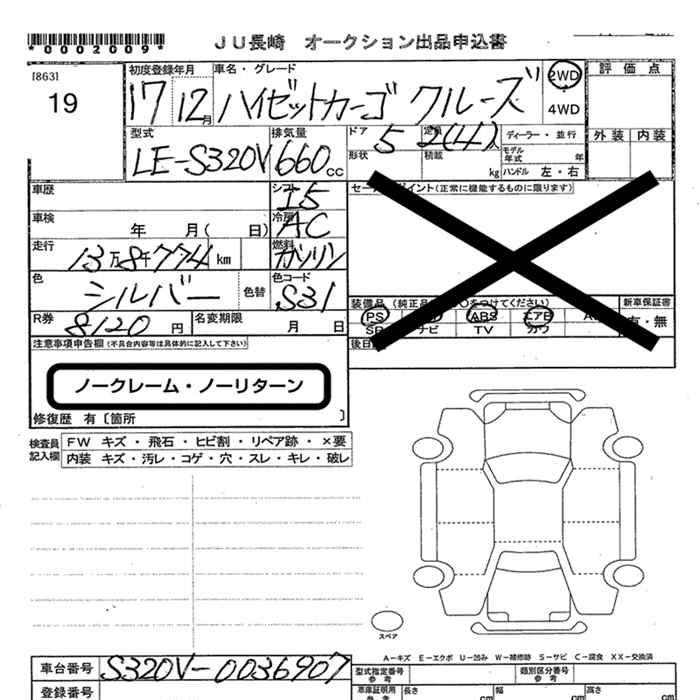 *0002009*
JU長崎 オークション出品申込書
[863]
19
初度登録年月 車名・グレード
17 12月 ハイゼットカーゴ クルーズ
2WD
4WD
評価点
外装 内装
型式 排気量 ドア 定員 ディーラー・並行
LE-S320V 660cc 5 2(4)人
形状 積載 kg
モデル年式 年
ハンドル 左・右
車歴 シフト I5
車検 年 月( 日) 冷房 AC
走行 13万8千774km 燃料 ガソリン
色 シルバー 色替 色コード S31
R券 8120円 名変期限 月 日
イント(正常に機能するものに限ります)
装備品 (純正品 をつけてください) 新車保証書
PS ABS エアB 有・無
ナビ TV カワ
後日
注意事項申告欄(不具合内容等は具体的に記入して下さい)
ノークレーム・ノーリターン
修復歴 有〔箇所 〕
検査員記入欄
FW キズ・飛石・ヒビ割・リペア跡・×要
内装 キズ・汚レ・コゲ・穴・スレ・キレ・破レ
スペア
A-キズ E-エクボ U-凹み W-補修跡 S-サビ C-腐食 XX-交換済
車台番号 S320V-0036907
登録番号
型式指定番号 参考 類別区分番号 参考
車庫証明用 参考 長さ cm 幅 cm 高さ cm